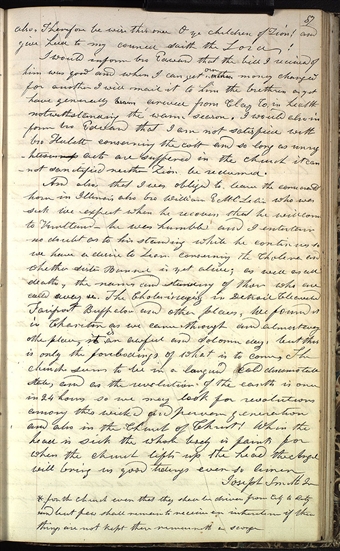 57
also. Therefore be wise this once O ye children of Zion! and
give heed to my council saith the Lord!
I would inform bro Edward that the bill I received of
him was good and when I can get other money changed
for another I will mail it to him the brethren as yet
have generally arrived from Clay Co, in health
notwithstanding the warm season. I would also in
form bro Edward that I am not satisfied with
bro Hulett concerning the and so long as
acts are suffered in the church it can
not sanctified neither Zion be redeemed.
And also that I was oblige to leave the command
in Illinois also bro William E. McLelin who was
sick we expect when he recovers that he will come
to Kirtland he was humble and I entertain
no doubt as to his standing while he continues so
we have a desire to learn concerning the Cholera and
whether sister Bunnel is yet alive; as well as all
deaths, the names and standing of those who are
called away. The Cholera rages in Detroit Cleaveland
Fairport Buffalow and other places, we found it
in Chareton as we came through and almost every
other place, it an awful and solemn day, but this
is only the forebodings of what is to come, The
church seems to be in a languid cold disconsolate
state, and as the revolution of the earth is once
in 24 hours so we may look for revolutions
among this wicked and perverse generation
and also in the Church of Christ! When the
head is sick the whole body is faint for
when the church lifts up the head the Angel
will bring us good tidings even so Amen
Joseph Smith Jr
* for the church even that they shall be driven from City to City
and but few shall remain to receive an inheritance if these
things are not kept there remaineth a scorge